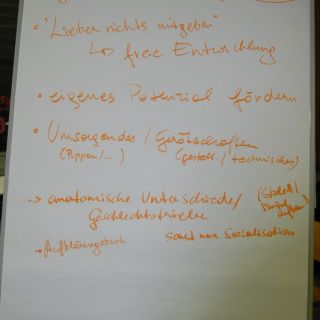 • "Lieber nichts mitgeben"
↳ freie Entwicklung
• eigenes Potenzial fördern
• Umsorgendes / Gerätschaften
(Puppen/...) (gestalt./technisches)
→ anatomische Unterschiede/
Geschlechtsrolle
→ Aufklärungsbuch
sonst nur Sozialisation